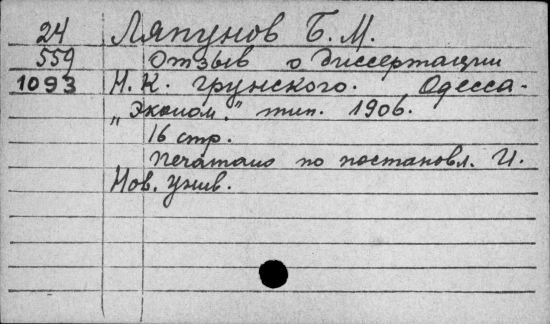 24 Ляпунов Б. М.
559 Отзыв о диссертации
1093 Н. К. Грунского. Одесса.
„Эконом." тип. 1906.
16 стр.
Печатано по постановл. И.
Нов. Унив.